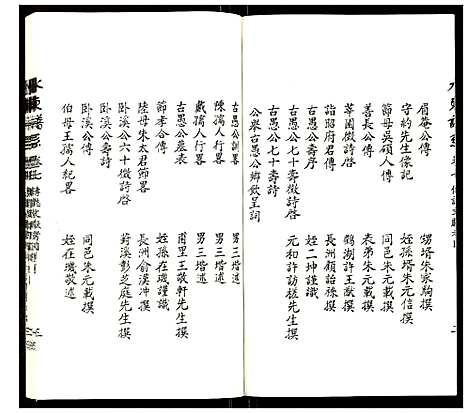 眉菴公傳 甥壻朱家駒撰
守約先生像記 姪孫壻朱元信撰
節母吳碩人傳 同邑朱元載撰
善長公傳 表弟朱元載撰
莘圃公徵詩啓 鶴湖許王猷撰
誥昭府君傳 長洲顧詒祿撰
古愚公壽序 姪二坤謹識
古愚公七十徵詩啓 元和許訪槎先生撰
古愚公七十壽詩
公舉古愚公鄉飲呈詞
古愚公訓畧 男三堦述
陳孺人行畧 男三堦述
戚孺人行畧 男三堦述
古愚公墓表 甫里王敬軒先生撰
節孝傳 姪孫在璣謹識
陸母朱太君節畧 長洲俞漢冲撰
卧溪公六十徵詩啓 葑溪彭芝庭先生撰
卧溪公壽詩
卧溪公傳 同邑朱元載撰
伯母王孺人紀畧 姪在璣敬述